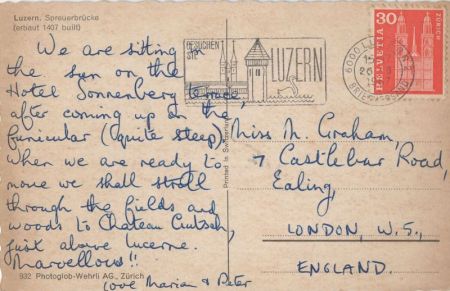 Luzern. Spreuerbrücke
(erbaut 1407 built)
We are sitting in
the sun on the
Hotel Sonnenberg terrace,
after coming up on the
funicular (quite steep).
When we are ready to
move we shall stroll
through the fields and
woods to Chateau Gutsch,
just above Lucerne.
Marvellous!!
love Marian & Peter
932 Photoglob-Wehrli AG., Zürich
Printed in Switzerland
BESUCHEN
SIE
LUZERN
6000 LUZERN
BRIEFVERSAND
30
HELVETIA
ZÜRICH
Miss M. Graham,
7 Castlebar Road,
Ealing,
LONDON, W.5.,
ENGLAND.